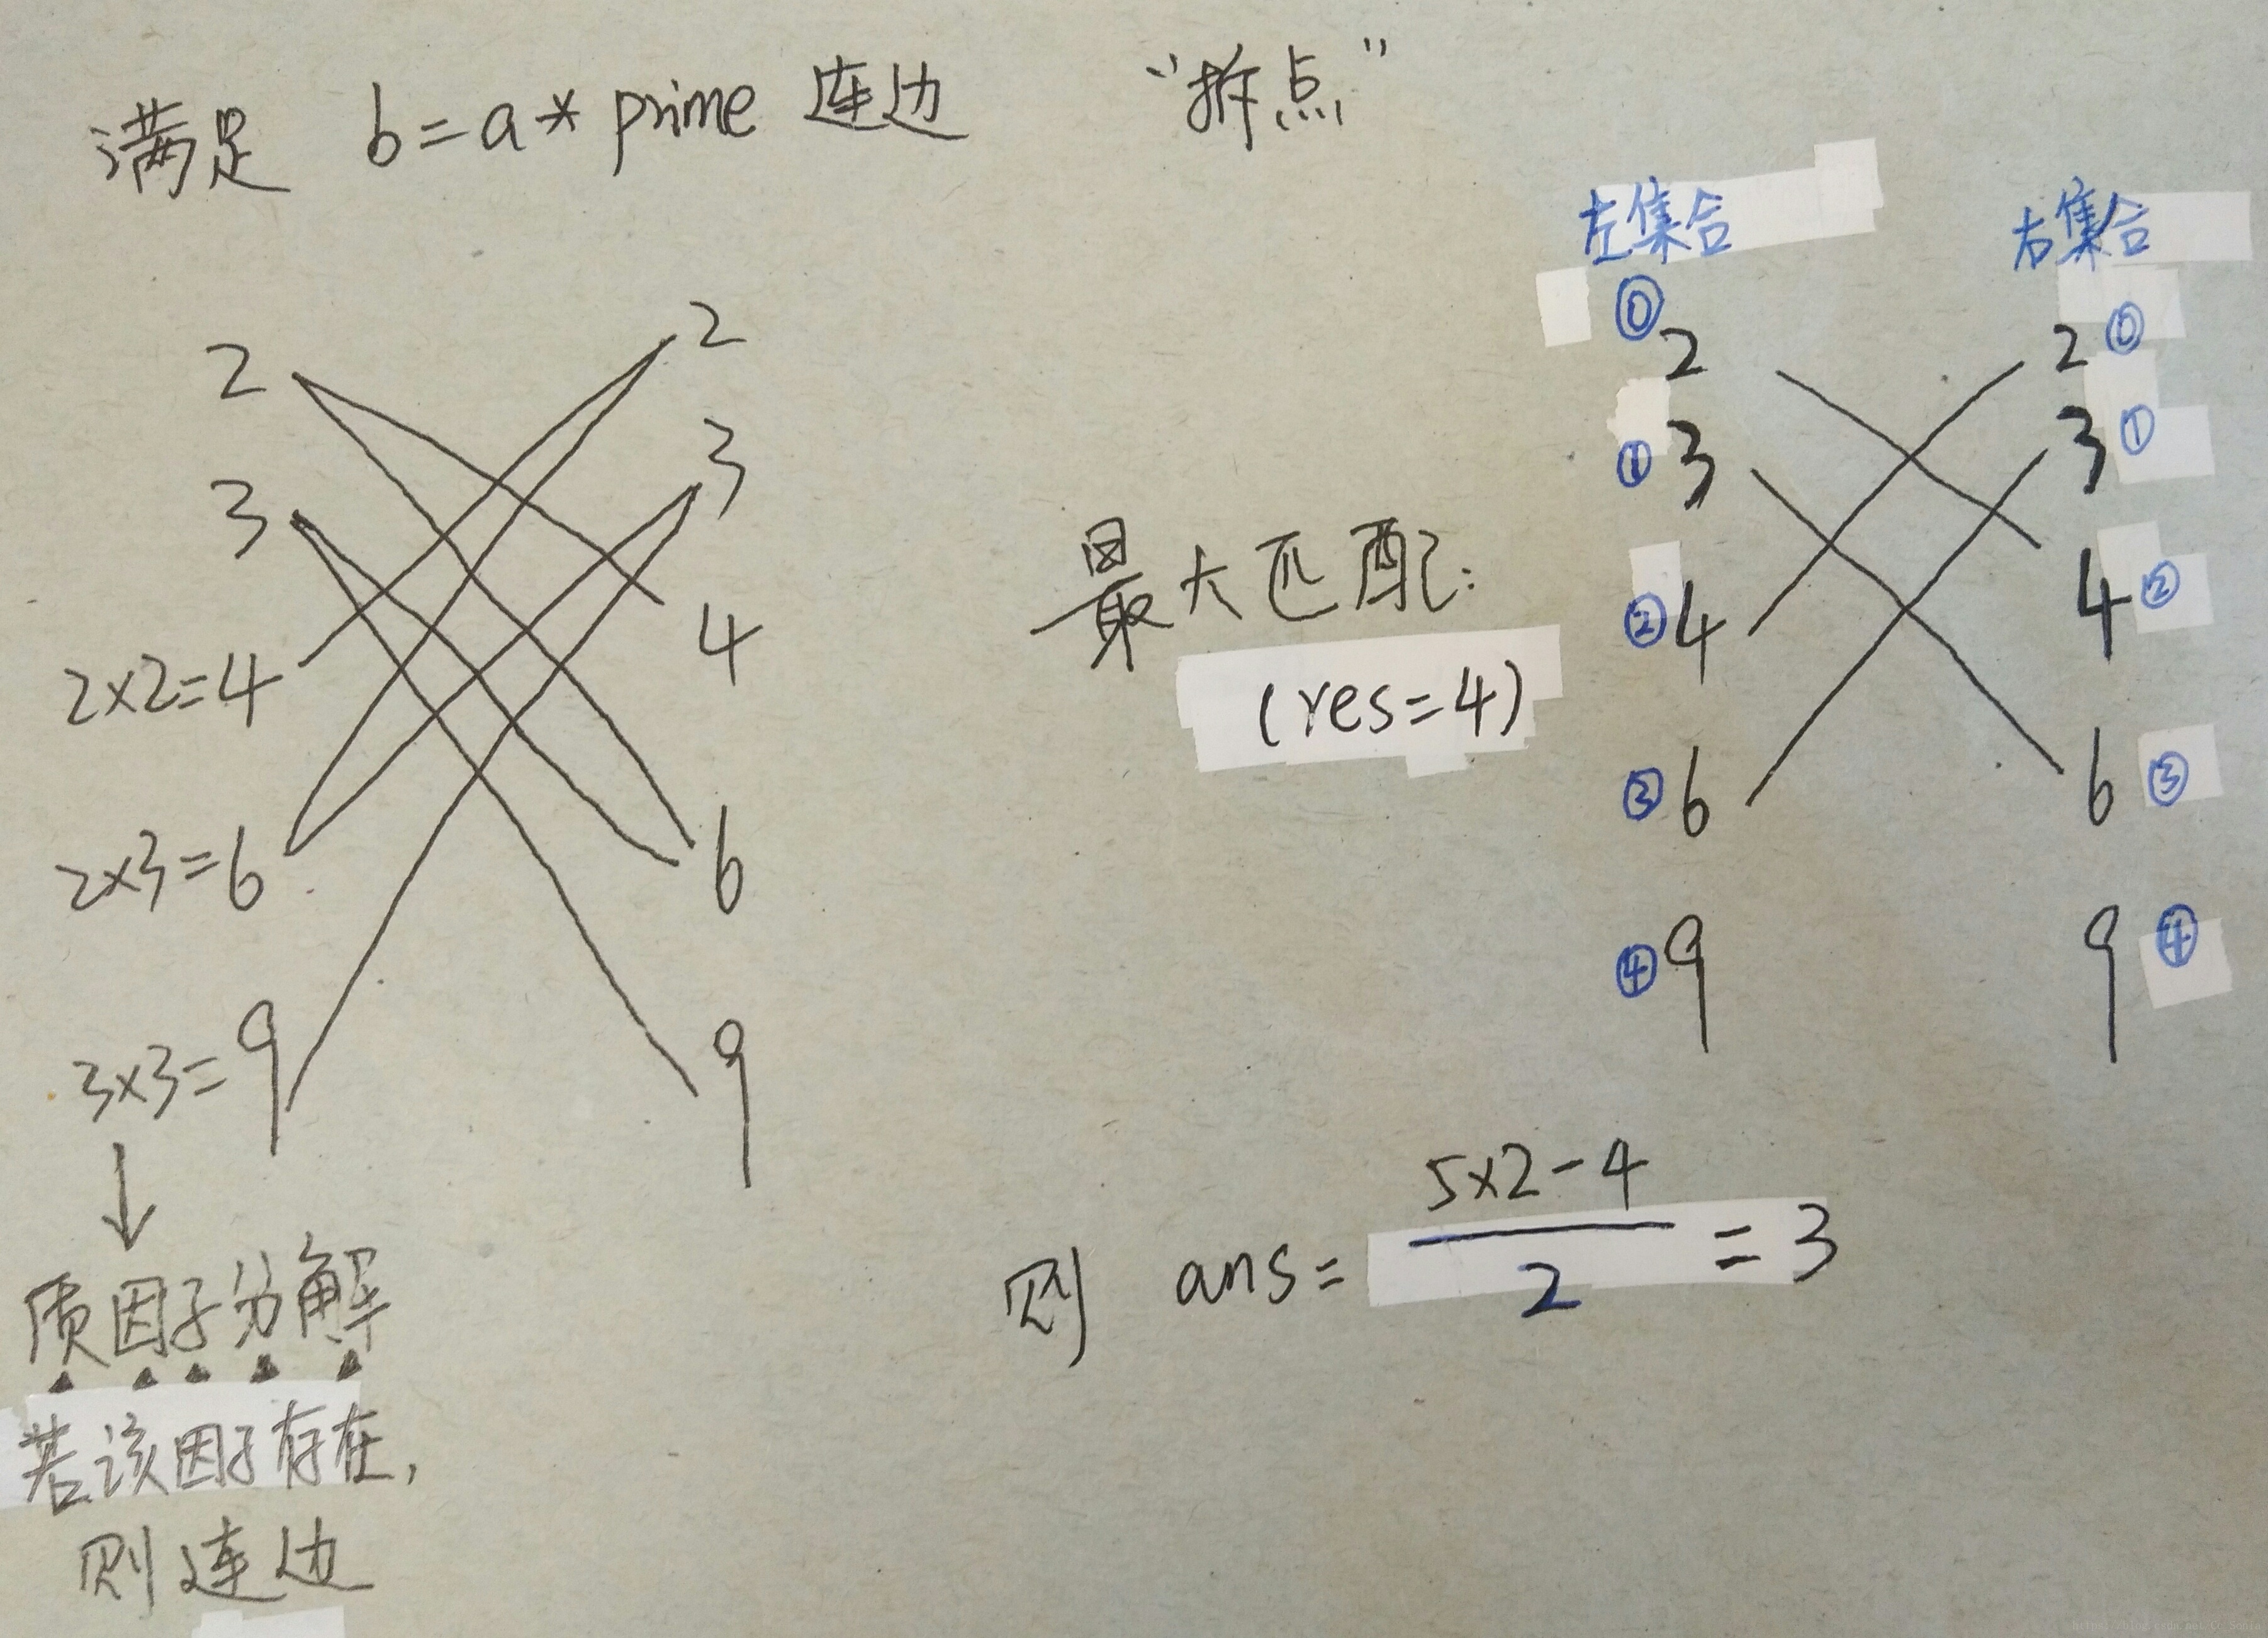 满足 b=a* prime 连边 “拆点”
2 2
3 3
2×2=4 4
2×3=6 6
3×3=9 9
↓
质因子分解
若该因子存在,
则连边
最大匹配:
(res=4)
左集合 右集合
⓪ 2 2 ⓪
① 3 3 ①
② 4 4 ②
③ 6 6 ③
④ 9 9 ④
则 ans= (5×2-4)/2 =3